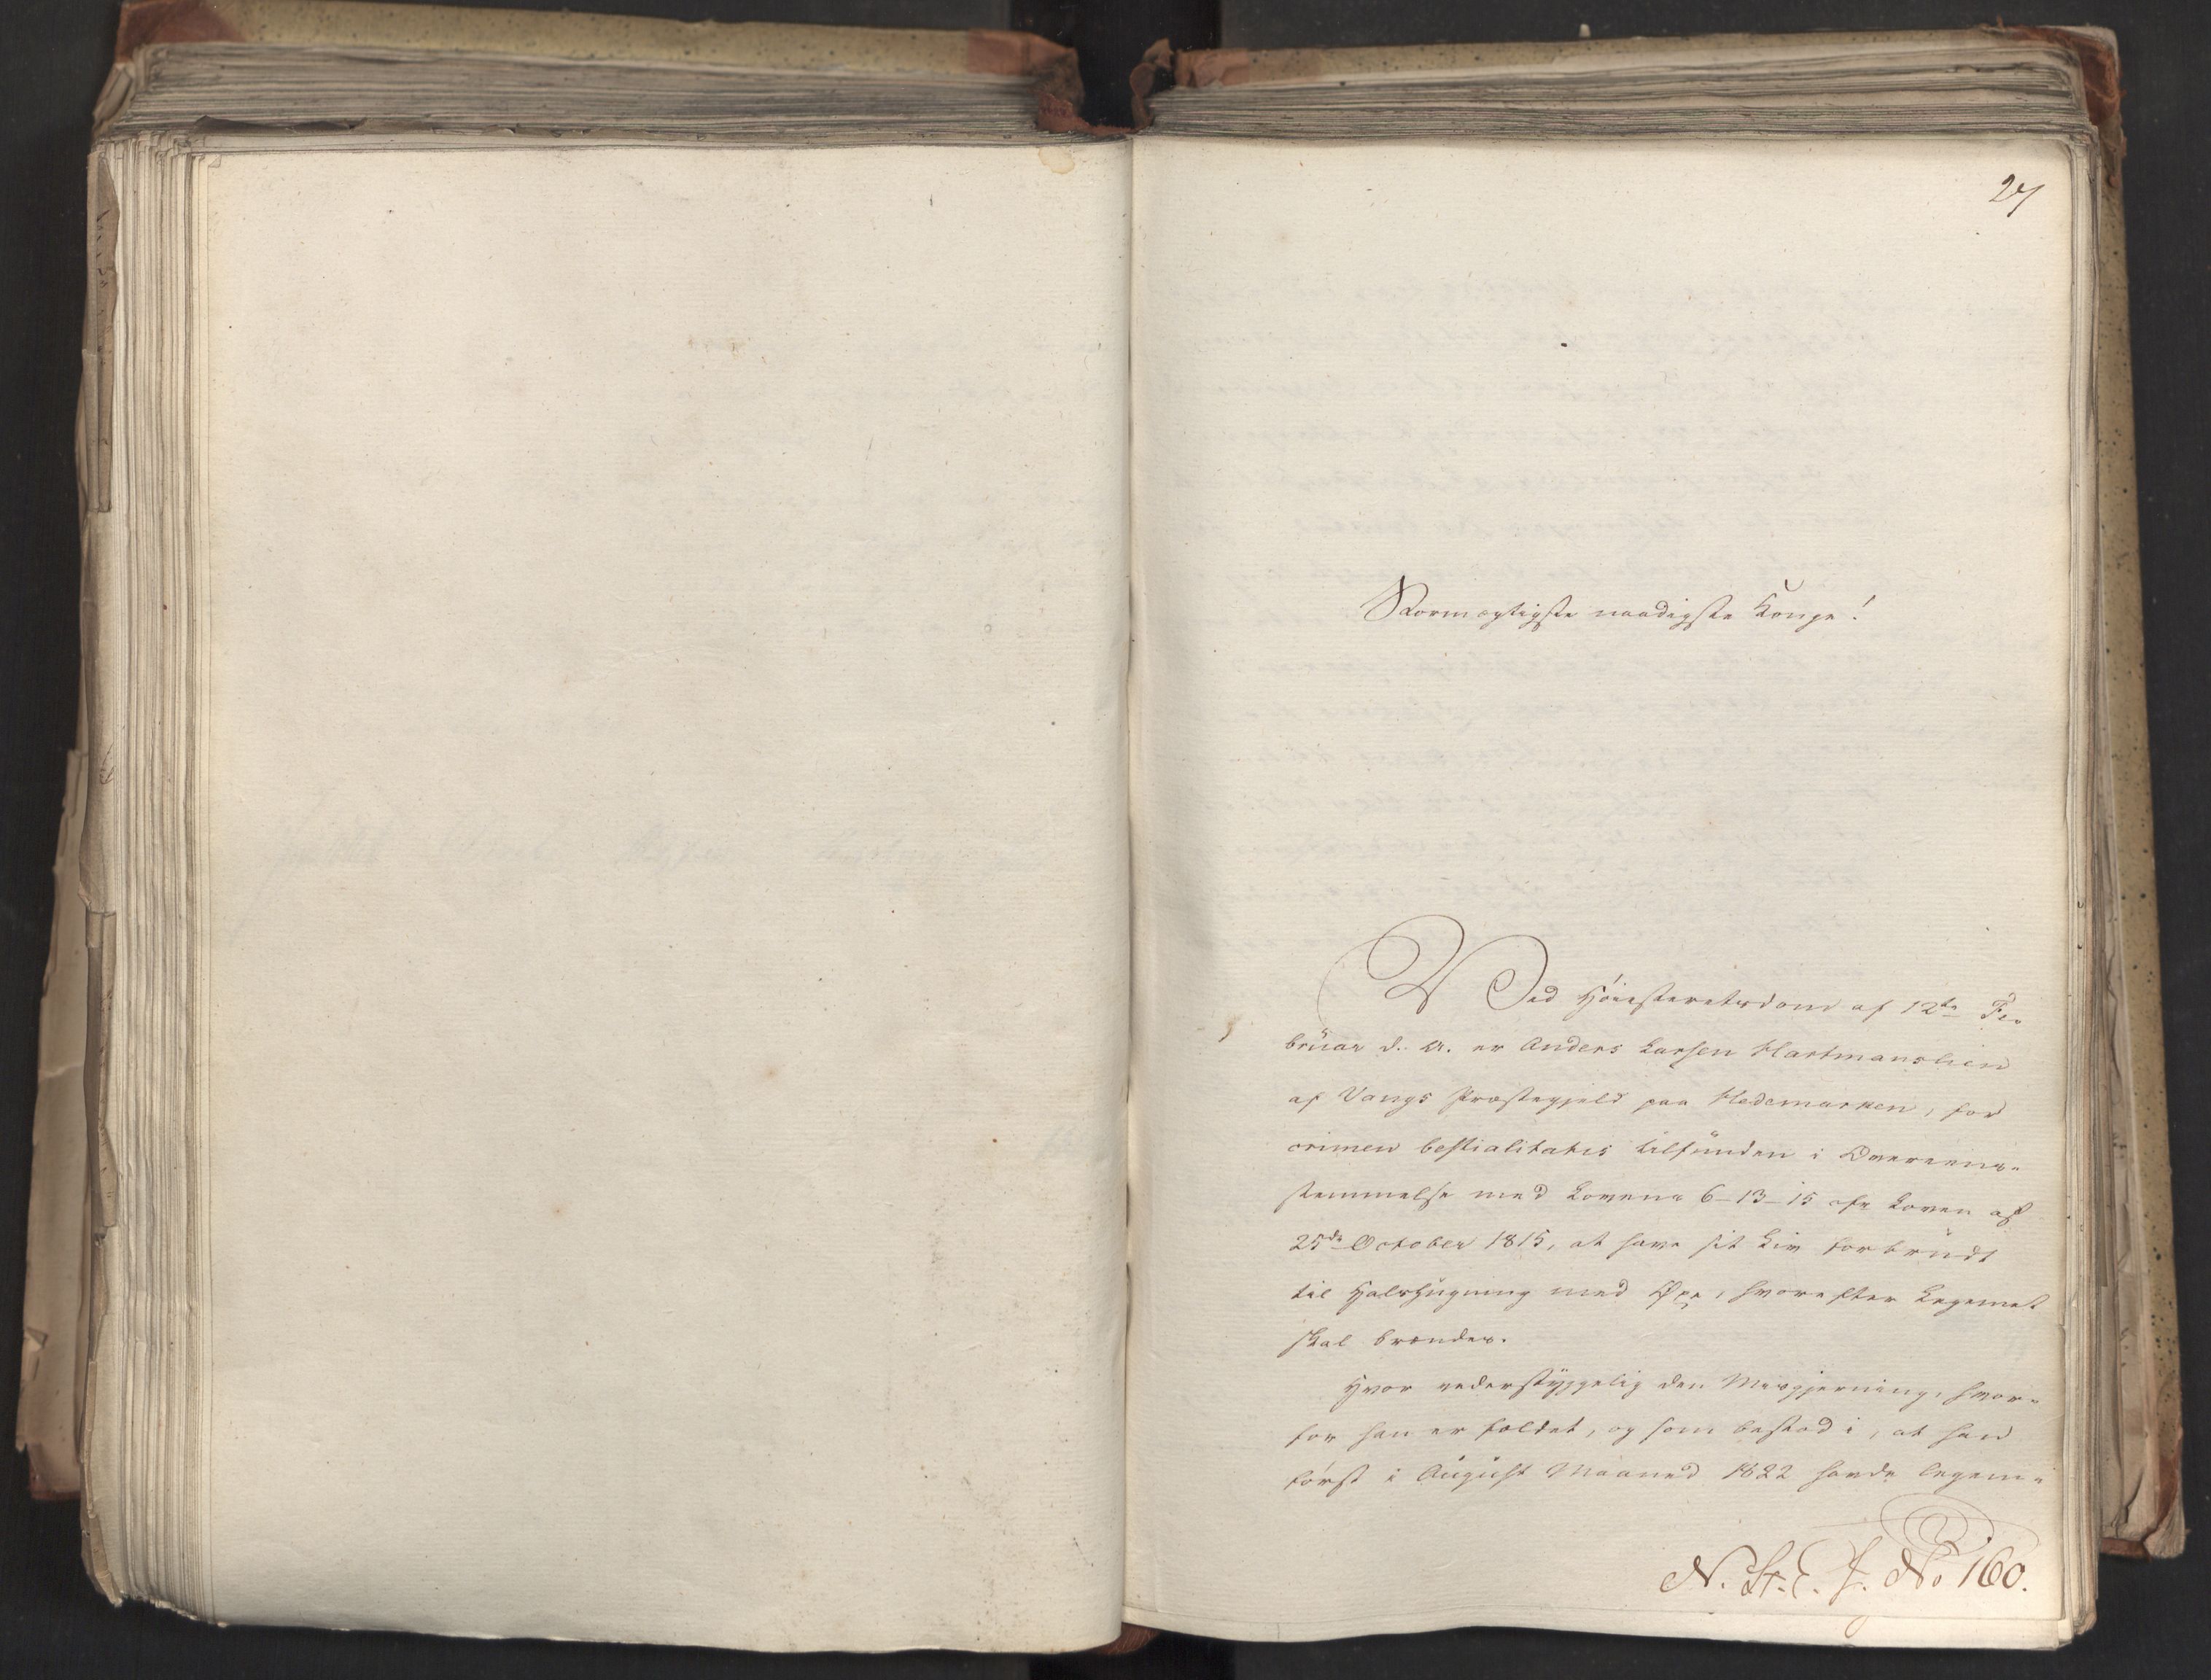 27
Stormægtigste naadigste Konge!
Ved Höiesteretsdom af 12te Fe-
bruar d. A. er Anders Larsen Hartmanslien
af Vangs Præstegjeld paa Hedemarken, for
crimen bestialitatis tilfunden i Overeens-
stemmelse med Lovens 6-13-15 cfr Loven af
25de October 1815, at have sit Liv forbrudt
til Halshugning med Øxe, hvorefter Legemet
skal brændes.
Hvor vederstyggelig den Misgjerning, hvor-
for han er fældet, og som bestod i, at han
först i August Maaned 1822 havde legem-
N. St. E. J. No 160.